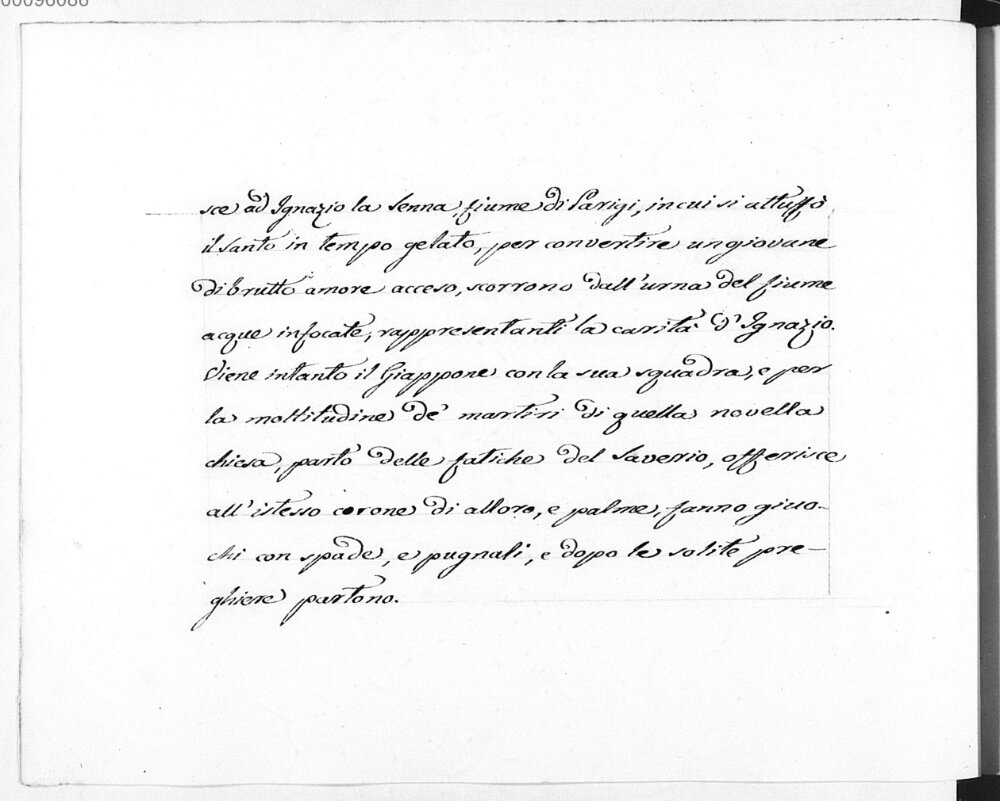 00096086
sce ad Ignazio la Senna, fiume di Parigi, in cui si attuffò
il Santo in tempo gelato, per convertire un giovane
di brutto amore acceso, scorrono dall'urna del fiume
acque infocate, rappresentanti la carità d'Ignazio.
Viene intanto il Giappone con la sua squadra, e per
la moltitudine de' martiri di quella novella
chiesa, parto delle fatiche del Saverio, offerisce
all'istesso corone di alloro, e palme, fanno giuo-
chi con spade, e pugnali, e dopo le solite pre-
ghiere partono.